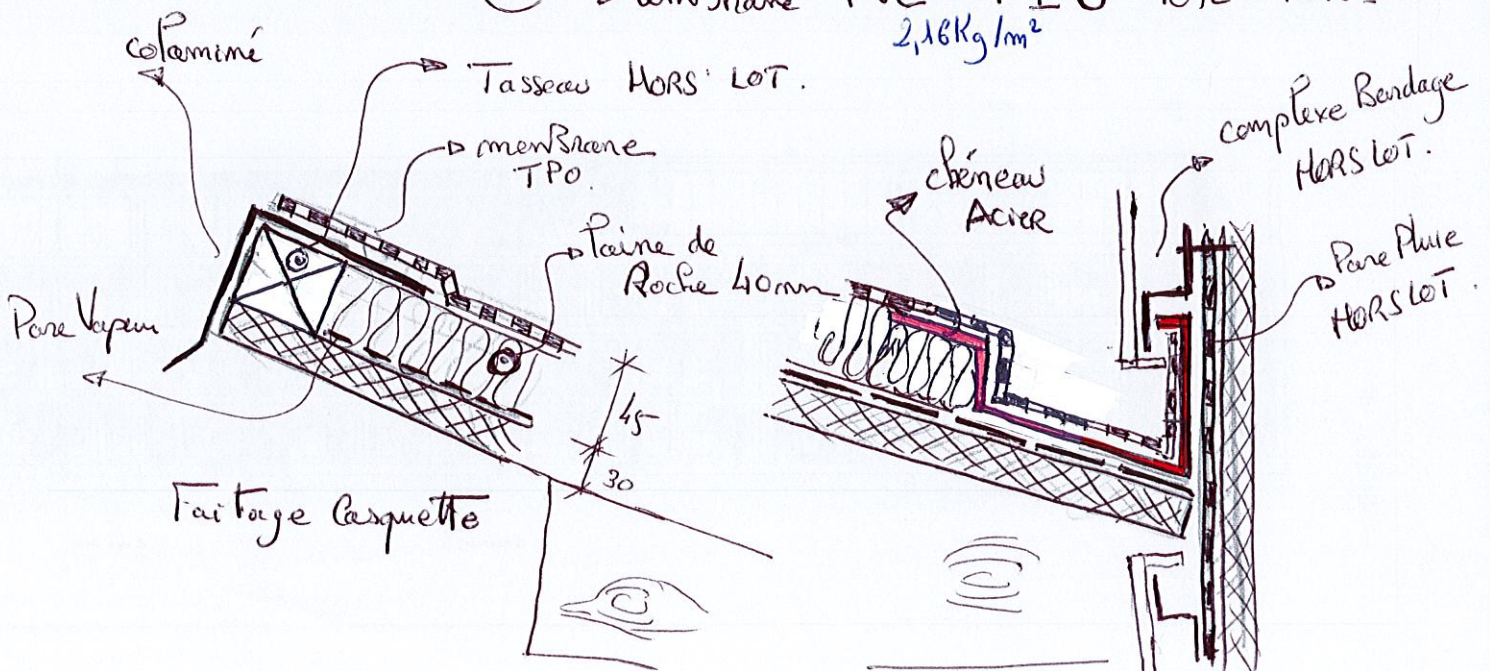 2,16Kg/m²
colaminé
Tasseau HORS LOT.
membrane
TPO.
laine de
Roche 40mm
Pare Vapeur
45
30
Faitage Casquette
chéneau
ACIER
complexe Bardage
HORS LOT.
Pare Pluie
HORS LOT.